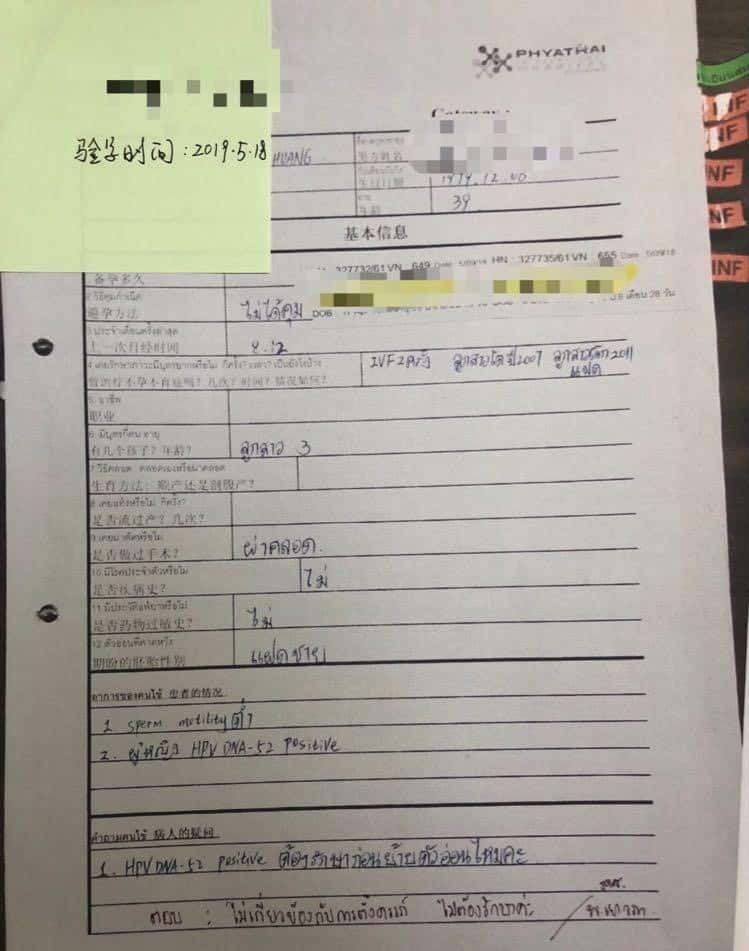 PHYATHAI
验孕时间:2019.5.18
HUANG
男方姓名
生日日期
1979.12.
年龄
39
基本信息
327732/61 VN : 649 HN : 327735/61 VN : 655
备孕多久
2.วิธีคุมกำเนิด
避孕方法
ไม่ได้คุม
DOB
28 วัน
3.ประจำเดือนครั้งล่าสุด
上一次月经时间
4.12
4.เคยรักษาภาวะมีบุตรยากหรือไม่ กี่ครั้ง? เวลา? เป็นยังไงบ้าง
曾治疗不孕不育症吗?几次?时间?情况如何?
IVF 2 ครั้ง ลูกสาวโต ปี 2007 ลูกสาว 2011
แฝด
5.อาชีพ
职业
6.มีบุตรกี่คน อายุ
有几个孩子?年龄?
ลูกสาว 3
7.วิธีคลอด คลอดเองหรือผ่าคลอด
生育方法:顺产还是剖腹产?
8.เคยแท้งหรือไม่ กี่ครั้ง?
是否流过产?几次?
9.เคยผ่าตัดหรือไม่
是否做过手术?
ผ่าคลอด
10.มีโรคประจำตัวหรือไม่
是否疾病史?
ไม่
11.มีประวัติแพ้ยาหรือไม่
是否药物过敏史?
ไม่
12.ตัวอ่อนที่คาดหวัง
期盼的胚胎性别
แฝดชาย
อาการของคนไข้ 患者的情况
1. sperm motility ต่ำ
2. ผู้หญิง HPV DNA-52 positive
คำถามคนไข้ 病人的疑问
1. HPV DNA-52 positive ต้องรักษาก่อนย้ายตัวอ่อนไหมคะ
ตอบ : ไม่เกี่ยวข้องกับการตั้งครรภ์ ไม่ต้องรักษาค่ะ
INF
INF
INF
INF
INF